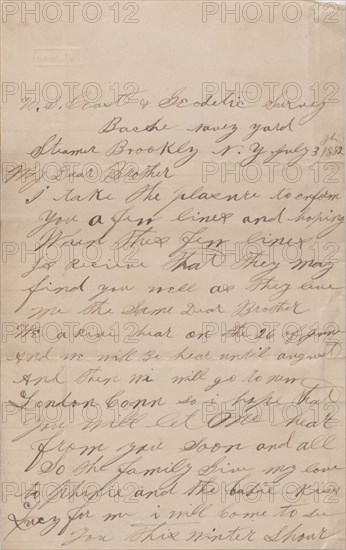 U. S. Coast & Geodetic Survey
Bache navey yard
Steamer Brookly N. Y July 3 1882
My Dear Brother
I take the plasure to inform
You a few lines and hoping
When thes few lines
Is recieve that They may
find you well as they leave
me the Same Dear Brother
We arive hear on the 26 of June
And we will be hear until august
And then we will go to new
London Conn so i hope that
you will let Me hear
from you soon and all
So the family Give my love
to and the babie Kiss
Lucy for me i will come to see
You this winter Shour
PHOTO 12